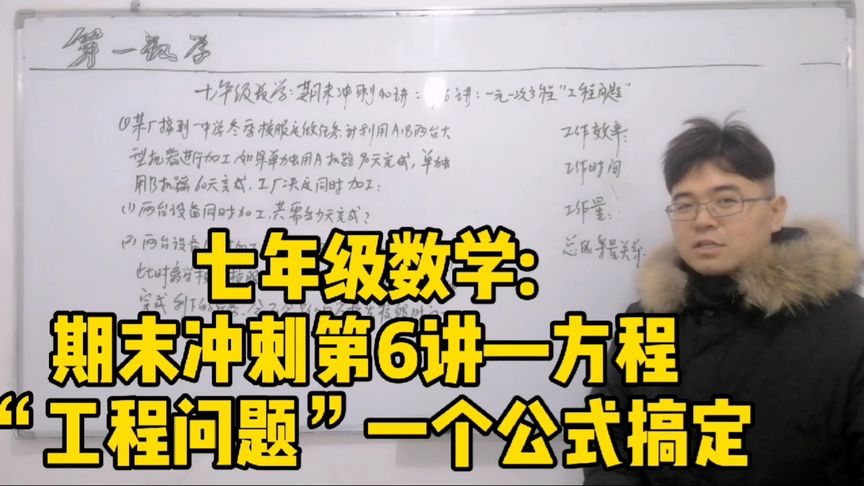 第一数学
七年级数学:期末冲刺40讲: 6讲:一元一次方程"工程问题"
①某厂接到一中学冬季校服定做任务,计划利用A、B两台大
工作效率:
型机器进行加工,如果单独用A机器90天完成,单独
工作时间
用B机器60天完成,工厂决定同时加工:
工作量:
(1)两台设备同时加工,共需多少天完成?
(2)两台设备
总的等量关系:
此时
完成
七年级数学:
期末冲刺第6讲—方程
“工程问题”一个公式搞定